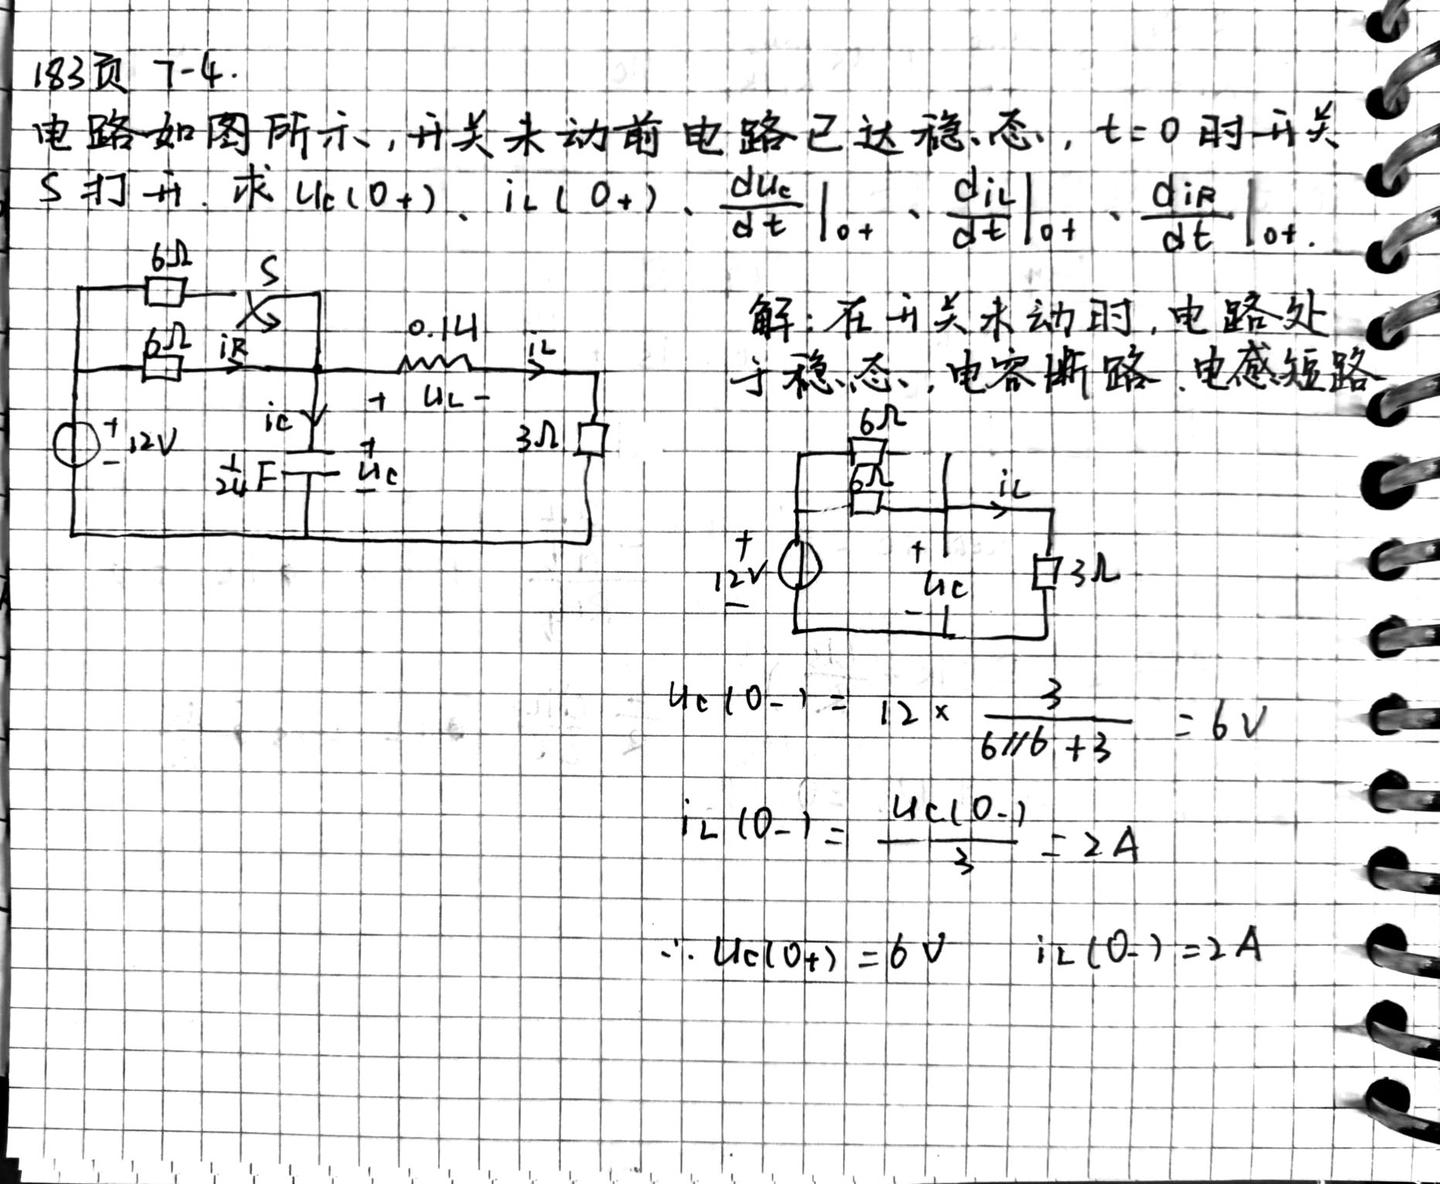 183页 7-4.
电路如图所示,开关未动前电路已达稳态,t=0时开关
S打开.求 uc(0+)、iL(0+)、duc/dt|0+、diL/dt|0+、diR/dt|0+.
6Ω
S
6Ω
iR
0.1H
iL
+ uL -
ic
+
12V
-
1/24 F
+
uc
-
3Ω
解:在开关未动时,电路处
于稳态,电容断路、电感短路
6Ω
6Ω
iL
+
12V
-
+
uc
-
3Ω
uc(0-) = 12 × 3/(6//6+3) = 6V
iL(0-) = uc(0-)/3 = 2A
∴ uc(0+) = 6V iL(0-) = 2A